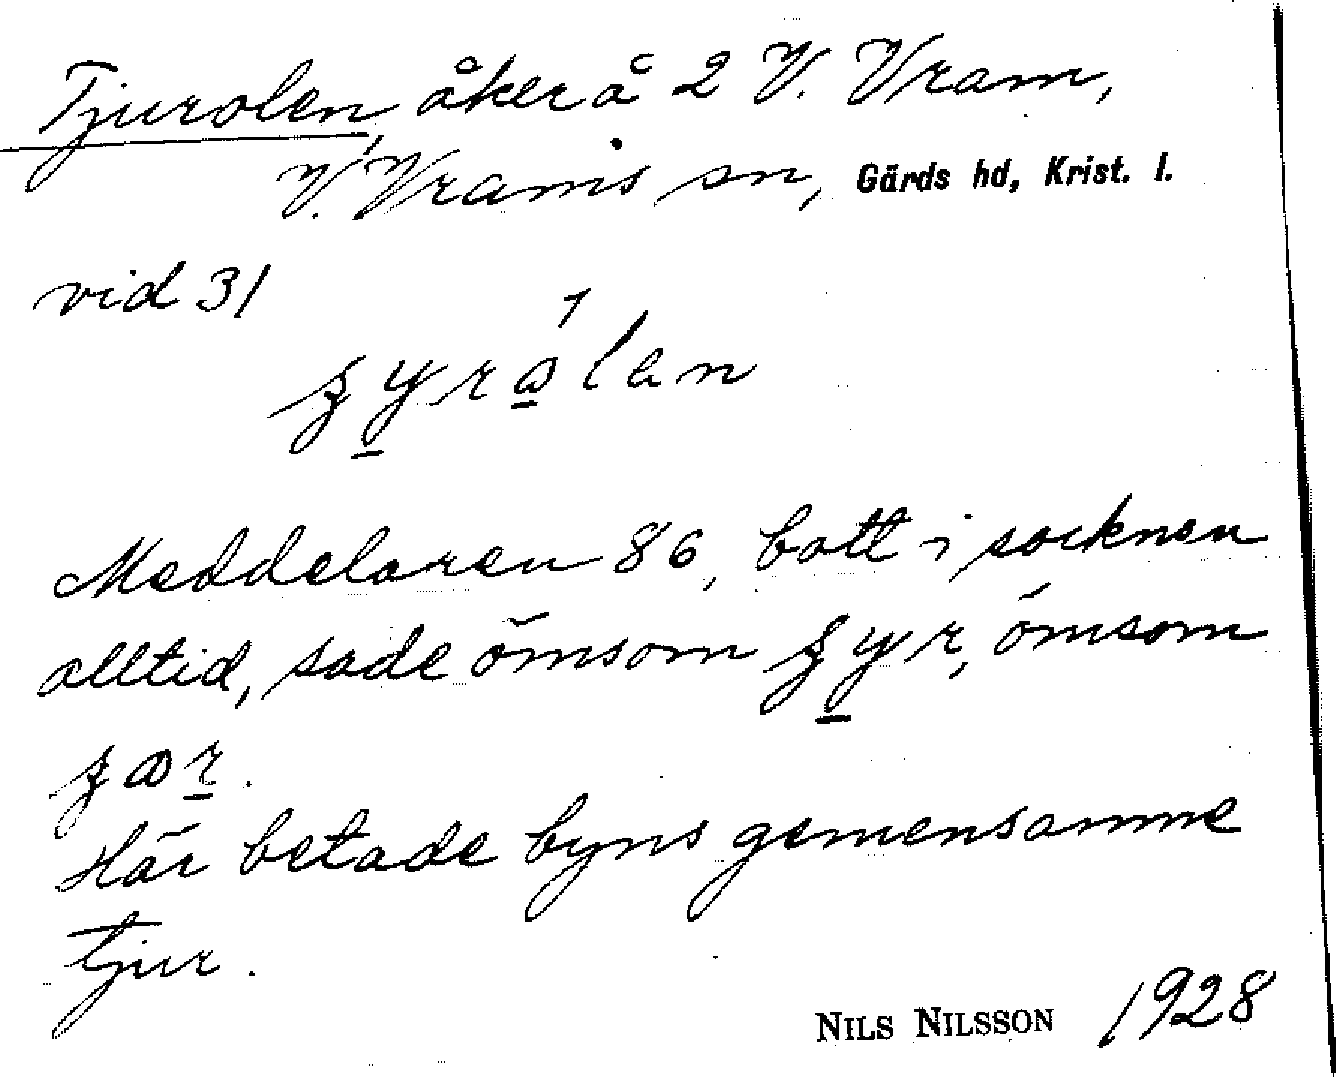 Tjurolen, åker å 2 V. Vram,
V. Vrams sn, Gärds hd, Krist. l.
vid 31
ʒyrålen
Meddelaren 86, bott i socknen
alltid, sade ömsom ʒyr, ömsom
ʒør.
Här betade byns gemensamme
tjur.
NILS NILSSON 1928